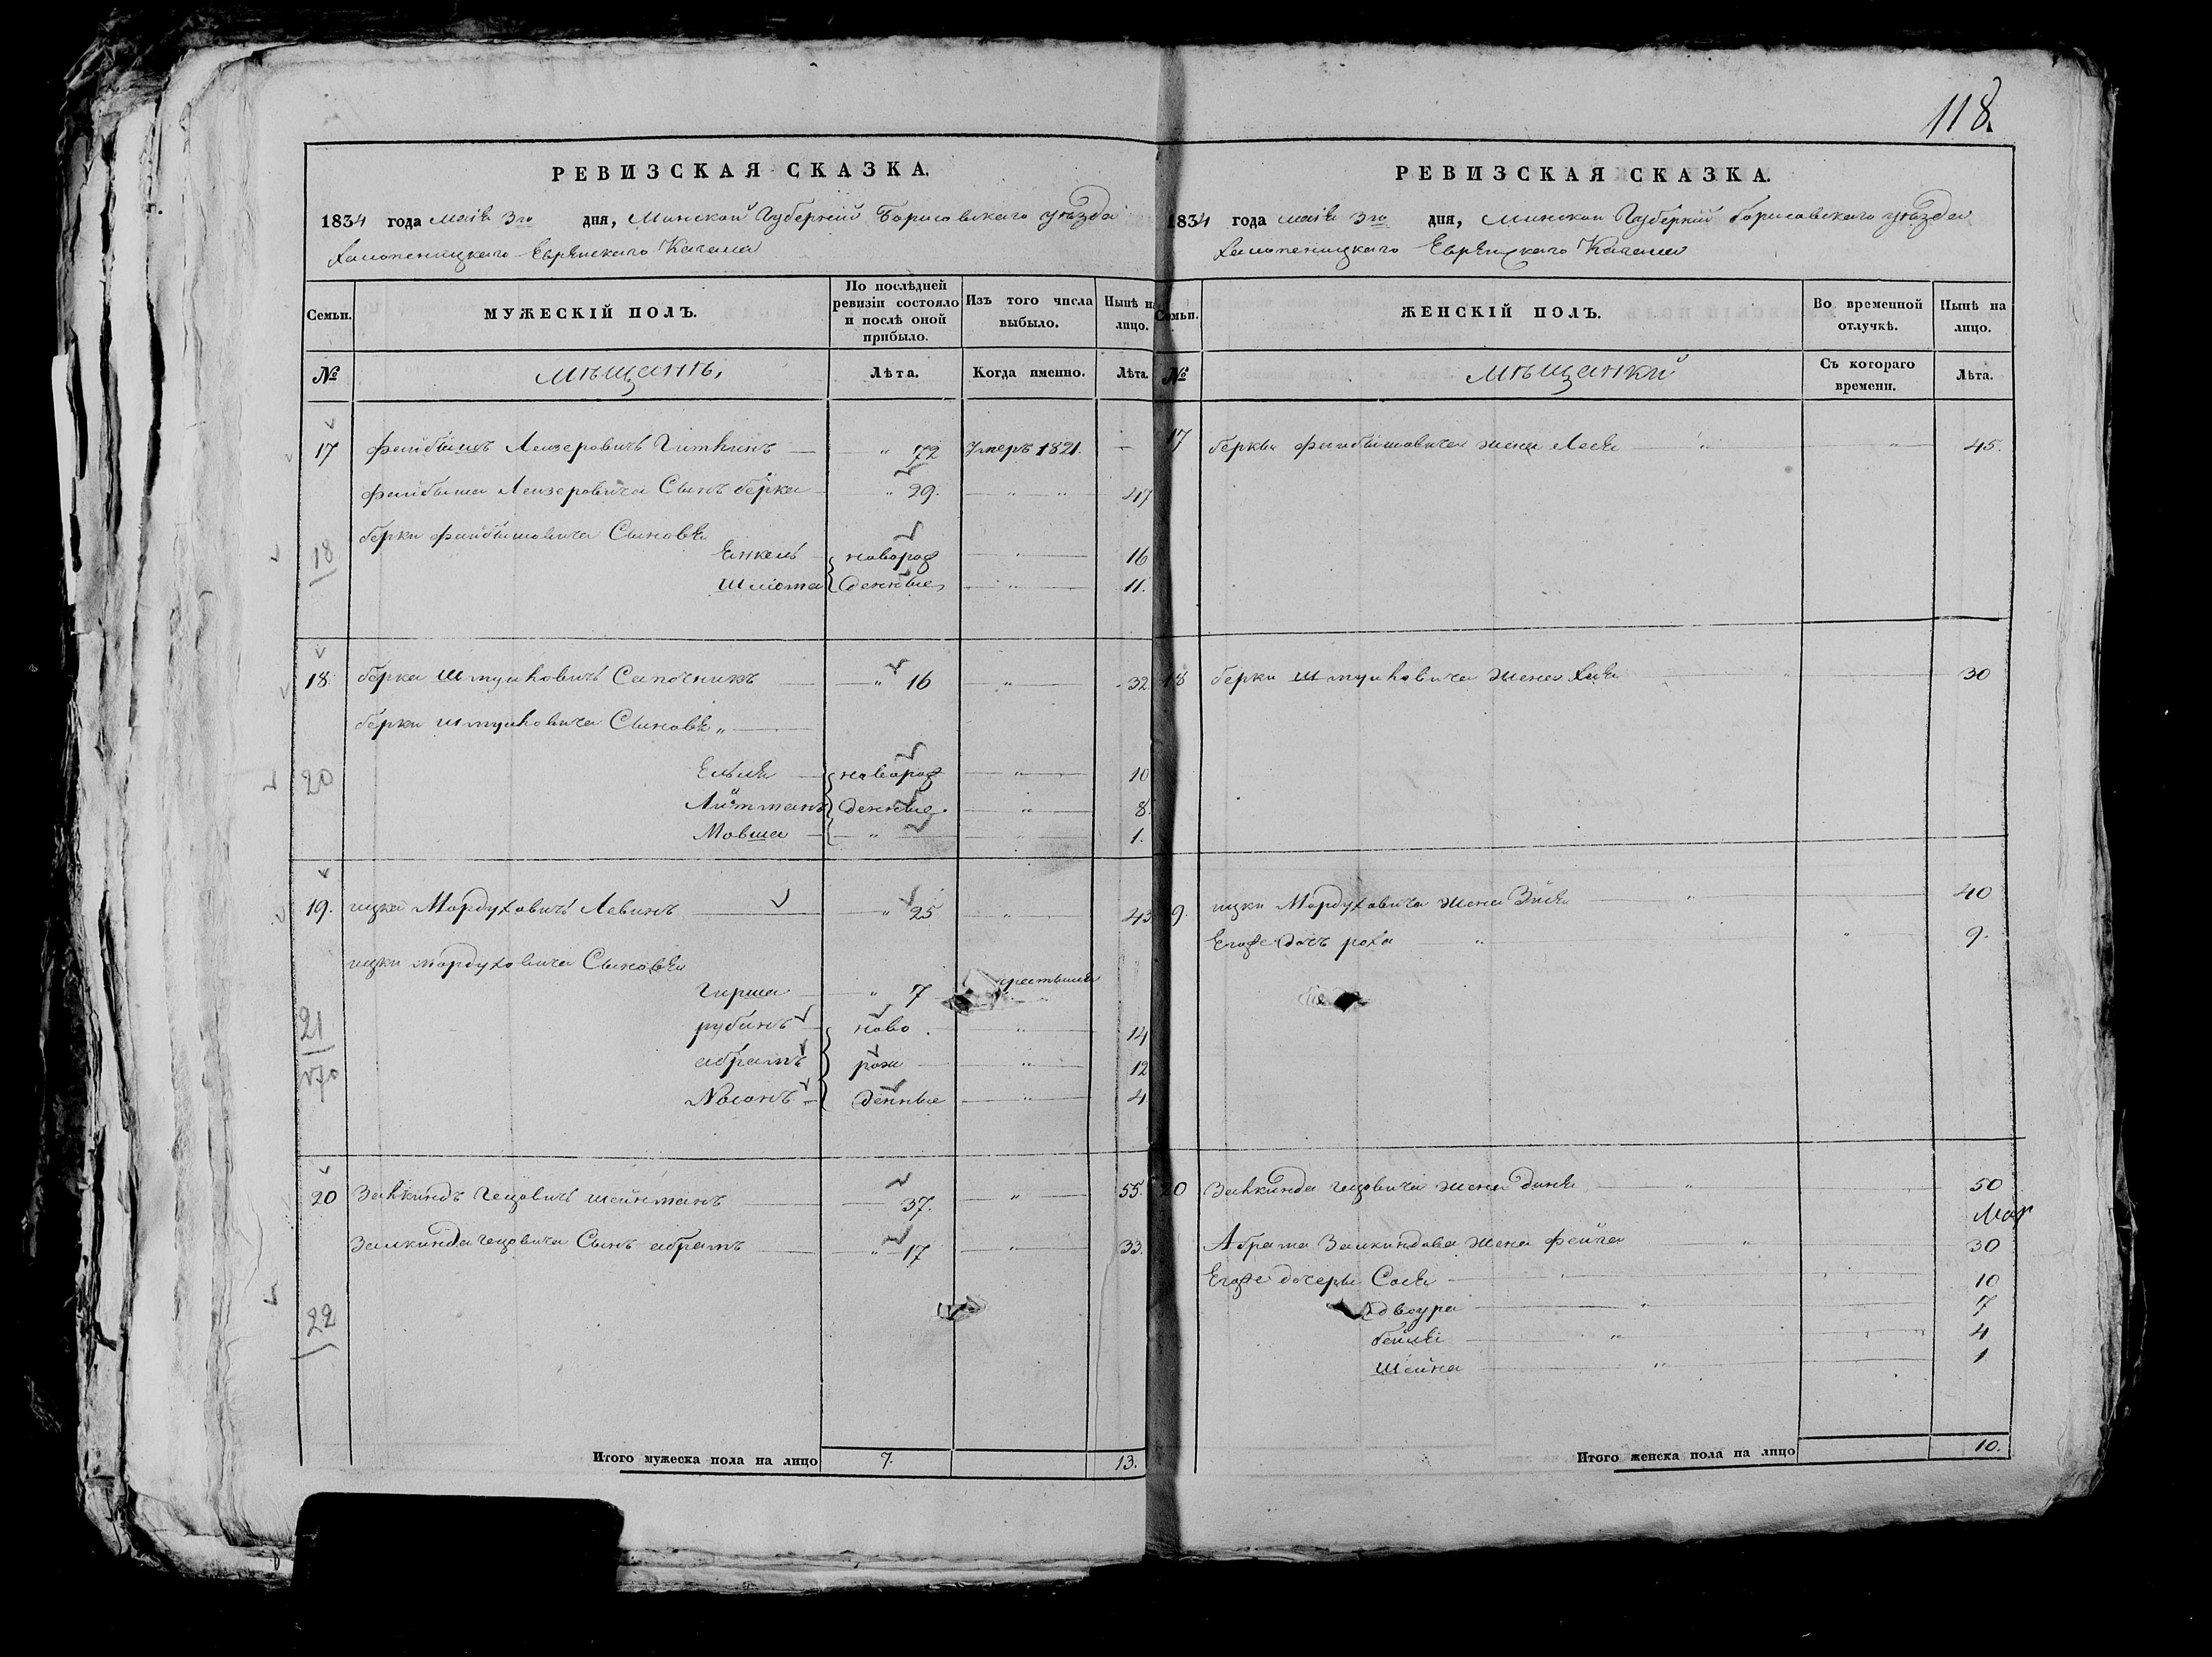 118.
РЕВИЗСКАЯ СКАЗКА.
1834 года маія 3го дня, Минской Губерніи Борисовскаго уѣзда
Холопеницкаго Еврейскаго Кагала
Семьи. МУЖЕСКІЙ ПОЛЪ. По послѣдней ревизіи состояло и послѣ оной прибыло. Изъ того числа выбыло. Нынѣ на лицо.
№ мѣщанѣ, Лѣта. Когда именно. Лѣта.
17 Файбишъ Лейзеровичъ Гиткинъ " 72 Умеръ 1821. —
Файбиша Лейзеровича Сынъ берка " 29. " " 47
18 берки файбишовича Сыновья
Янкель новорож " 16
Шліома денные " 11.
18 берка Шмуйловичъ Сапожникъ " 16 " 32
берки шмуйловича Сыновья "
20 новорож " 10
денные " 8
Мовша " " 1.
19. ицка Мордуховичъ Левинъ " 25 " 43
ицки мордуховича Сыновья
Гирша " 7
21 рубинъ ново " 14
абрамъ рож " 12
Носонъ денные " 4
20 Залкиндъ Гецовичъ шейнманъ 37. " 55.
Залкинда гецовича Сынъ абрамъ " 17 " 33.
22
Итого мужеска пола на лицо 7. 13.
РЕВИЗСКАЯ СКАЗКА.
1834 года маія 3го дня, Минской Губерніи борисовскаго уѣзда
Холопеницкаго Еврейскаго Кагала
Семьи. ЖЕНСКІЙ ПОЛЪ. Во временной отлучкѣ. Нынѣ на лицо.
№ мѣщанкй Съ котораго времени. Лѣта.
17 берки файбишовича жена Леся " " 45.
18 берки шмуйловича жена Хая " 30
9. ицки Мордуховича жена " 40
Егоже дочь роха " " 9.
20 Залкинда гецовича жена Диня " 50
Абрама Залкиндова жена фейга " 30
Егоже дочеры Сося " 10
двоура " 7
бейля " 4
Шейна " 1
Итого женска пола на лицо 10.